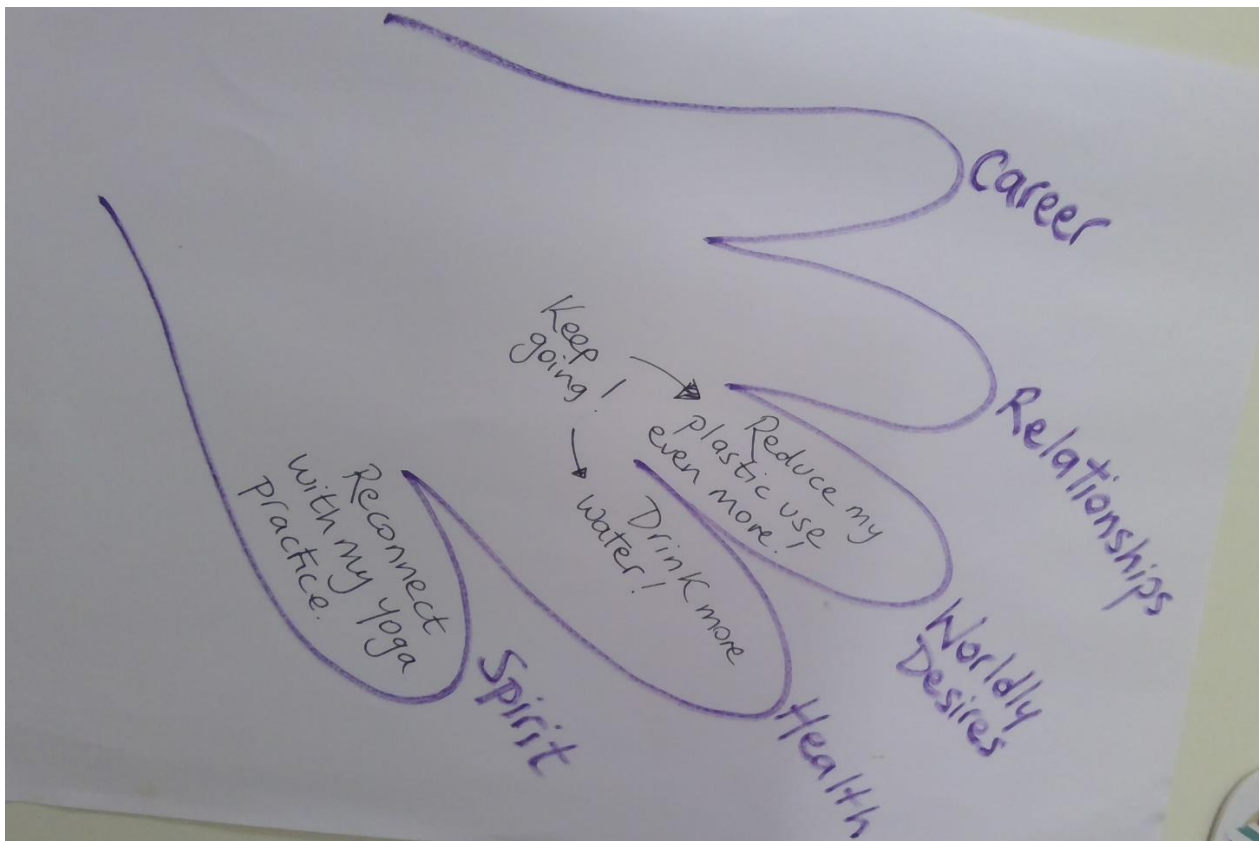 Career
Relationships
Worldly
Desires
Health
Spirit
Keep
going!
Reduce my
plastic use
even more!
Drink more
water!
Reconnect
with my yoga
practice.